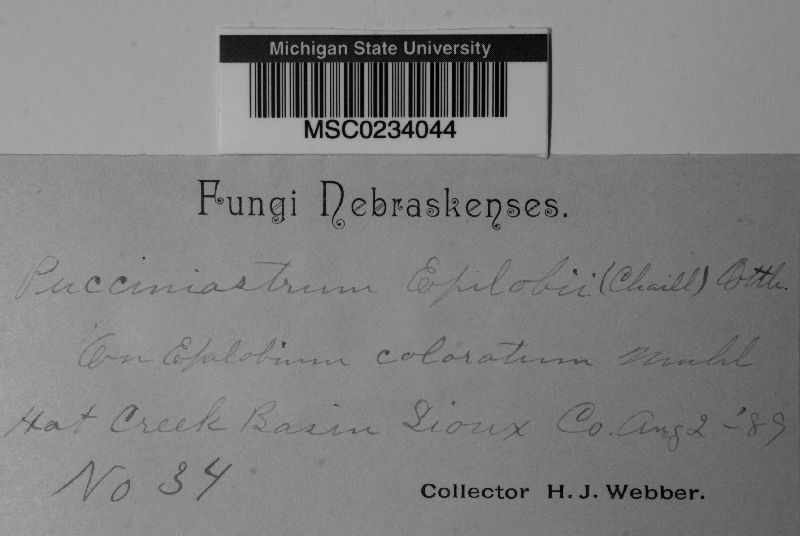 Michigan State University
MSC0234044
Fungi Nebraskenses.
Pucciniastrum Epilobii (Chaill) Otth.
On Epilobium coloratum Muhl
Hat Creek Basin Sioux Co. Aug 2 - '89
No 34
Collector H. J. Webber.